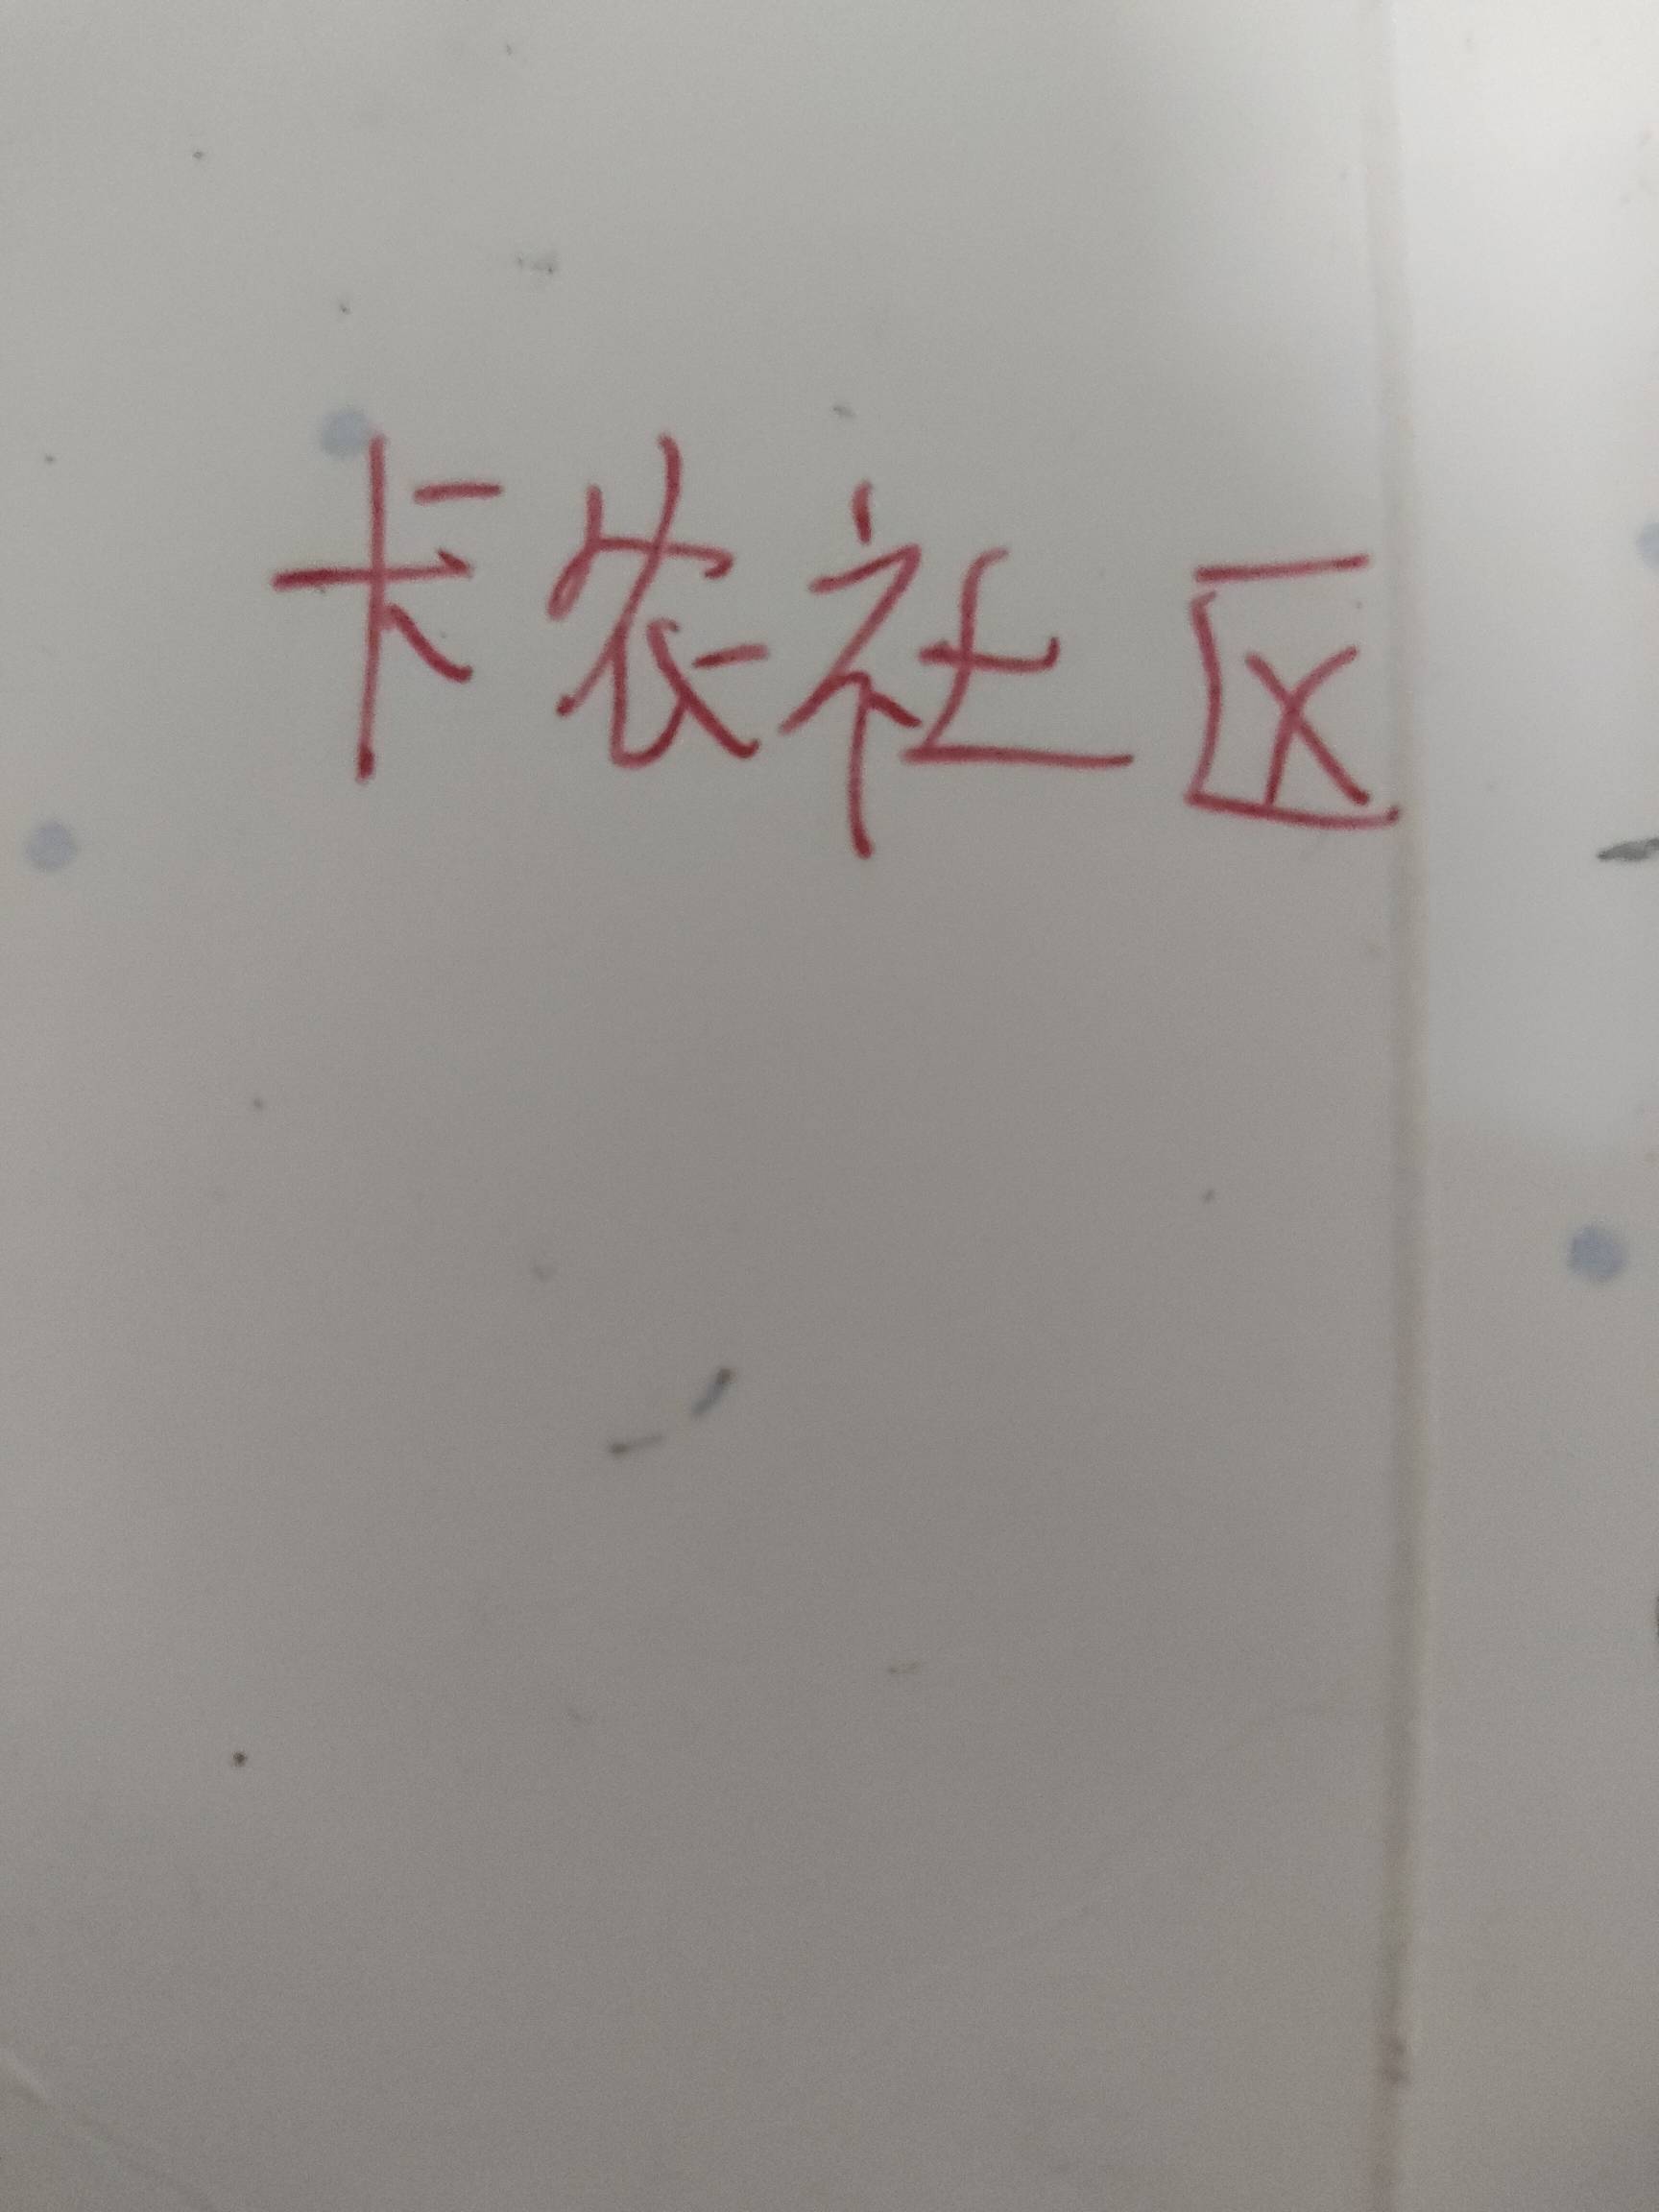 卡农社区